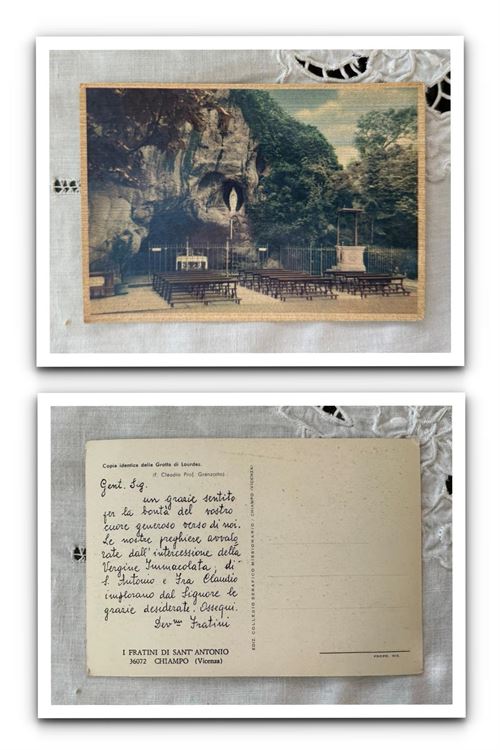 Copia identica della Grotta di Lourdes.
(F. Claudio Prof. Granzotto)
Gent. Sig.
un grazie sentito
per la bontà del vostro
cuore generoso verso di noi.
Le nostre preghiere avvalo,
rate dall'intercessione della
Vergine Immacolata, di
S. Antonio e Fra Claudio
implorano dal Signore le
grazie desiderate. Ossequi.
Dev.mi Fratini
I FRATINI DI SANT'ANTONIO
36072 CHIAMPO (Vicenza)
EDIZ. COLLEGIO SERAFICO MISSIONARIO - CHIAMPO (VICENZA)
PROPR. RIS.